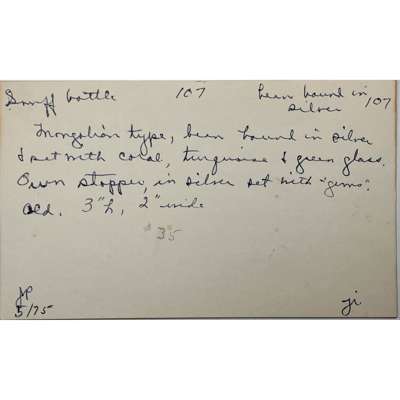 Snuff bottle 107 been bound in 107
silver
Mongolian type, been bound in silver
& set with coral, turquoise & green glass.
Own stopper, in silver set with "gems".
Old. 3"h, 2" wide
$35
JP
5/75 ji